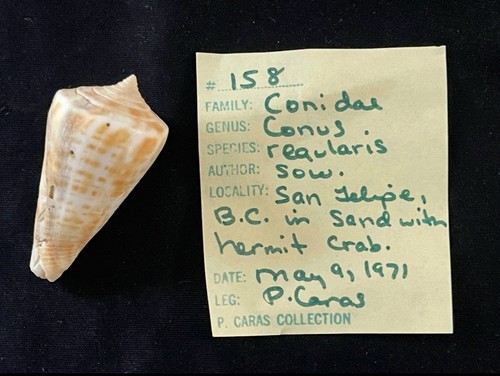 # 158
FAMILY: Conidae
GENUS: Conus.
SPECIES: regularis
AUTHOR: Sow.
LOCALITY: San Felipe,
B.C. in sand with
hermit crab.
DATE: May 9, 1971
LEG: P. Caras
P. CARAS COLLECTION